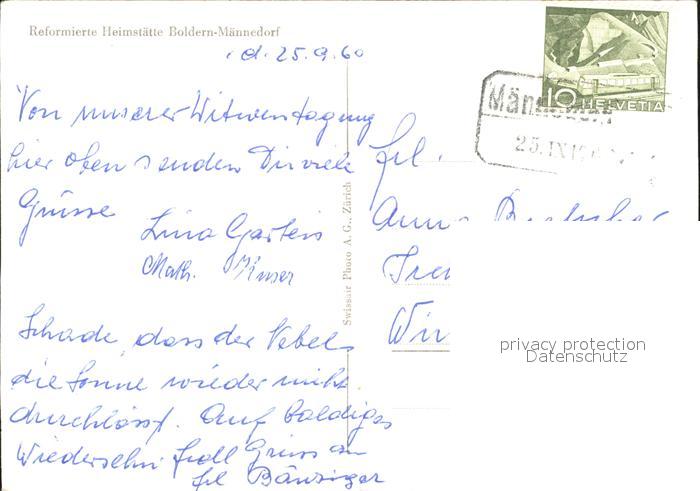 Reformierte Heimstätte Boldern-Männedorf
d. 25.9.60
Von unserer Witwentagung
hier oben senden Dir viele
Grüsse
Lina
Math.
Schade, dass der Nebel
die Sonne wieder nicht
durchlässt. Auf baldiges
Wiedersehn! Gruss an
frl Bänziger
Swissair Photo A. G., Zürich
10 HELVETIA
25. IX
frl.
privacy protection
Datenschutz